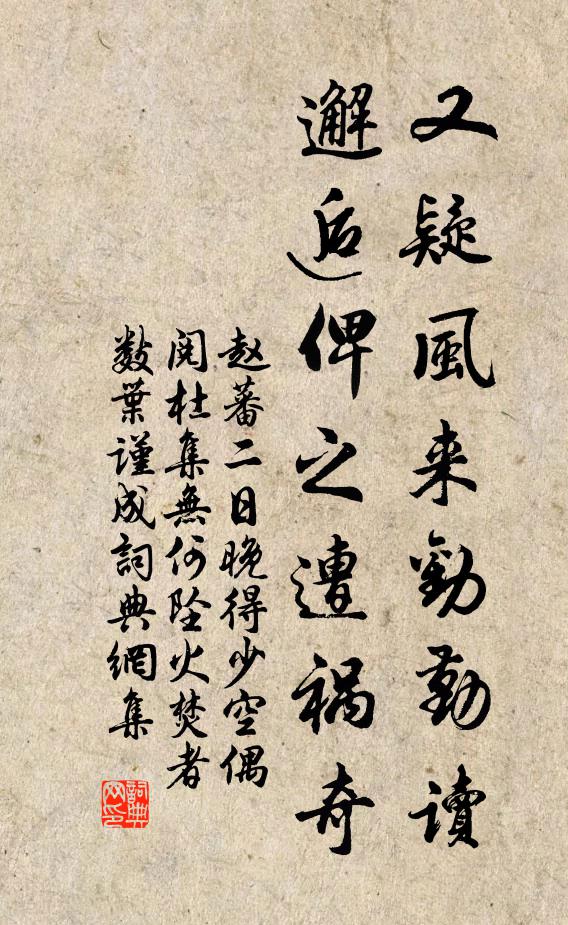 又疑風来勸勤讀
邂逅俾之遭祸奇
赵蕃二日晚得少空偶
阅杜集無何坠火焚者
数葉谨成詞典網集
詞典網印